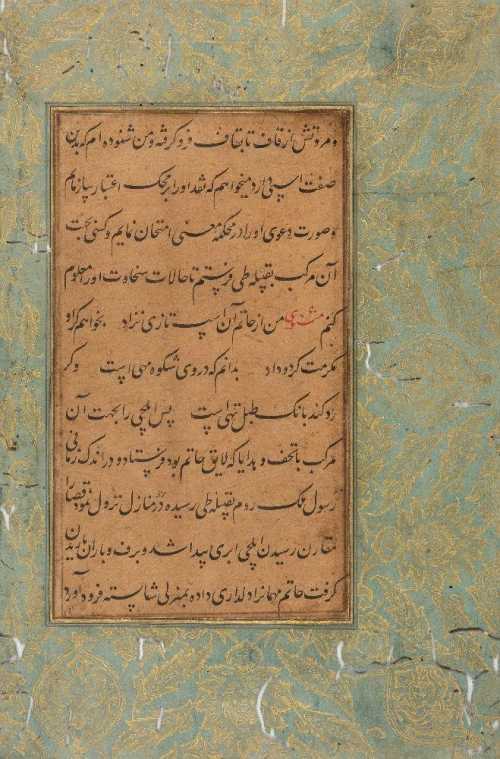 و مروتش از قاف تا بقاف فرو گرفته و من شنوده ام که بدین
صفت اسپی دارد میخواهم که نقد او را بر محک اعتبار بیازمایم
و صورت دعوی او را در محکمه معنی امتحان نمایم و کسی بجهت
آن مرکب بقبیله طی فرستم تا حالات سخاوت او را معلوم
کنم مثنوی من از حاتم آن اسپ تازی نژاد بخواهم گر او
مکرمت کرد و داد بدانم که در وی شکوه مهی است و گر
رد کند بانک طبل تهی است پس ایلچی را بجهت آن
مرکب با تحف و هدایا که لایق حاتم بود فرستاد و در اندک زمانی
رسول ملک روم بقبیله طی رسیده در منازل نزول نمود قضا را
مقارن رسیدن ایلچی ابری پیدا شد و برف و باران باریدن
گرفت حاتم مهمانرا دلداری داده بمنزلی شایسته فرود آورد